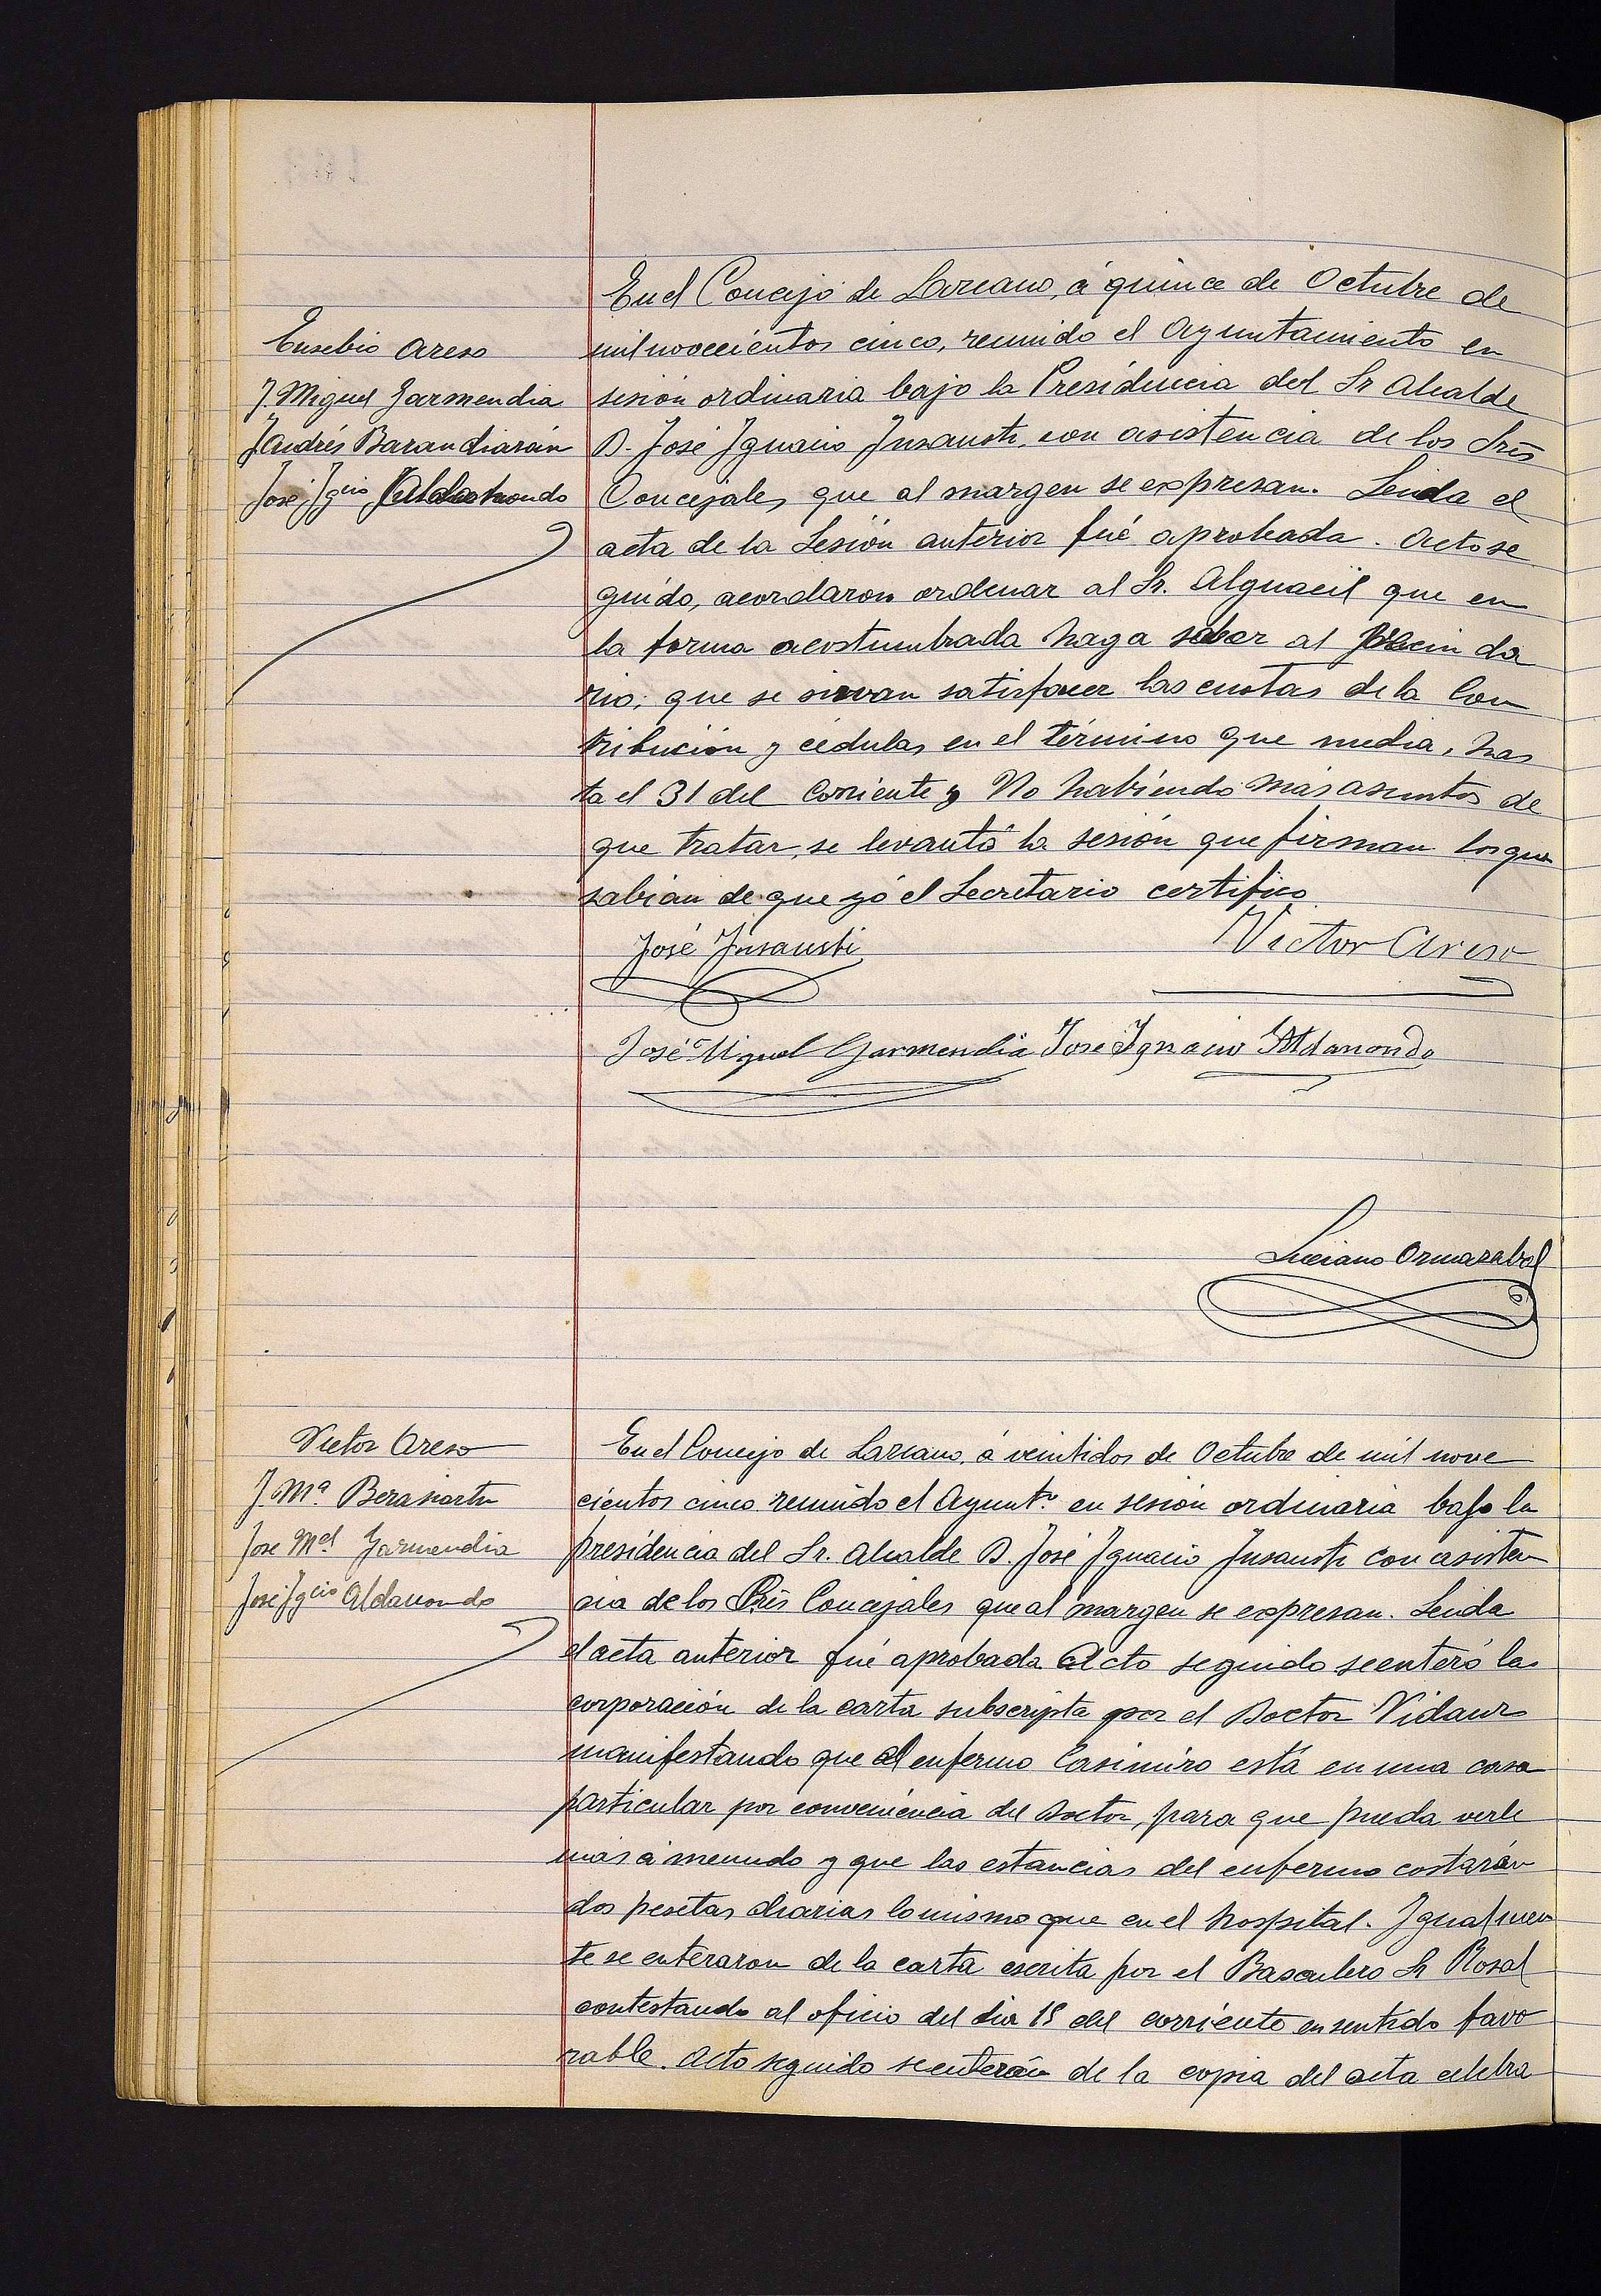 Eusebio Areso
J. Miguel Garmendia
J Andrés Barandiarán
José Jgcio Aldanondo
En el Concejo de Lazcano, á quince de Octubre de
mil novecientos cinco, reunido el Ayuntamiento en
sesión ordinaria bajo la Presidencia del Sr Alcalde
D. José Jgnacio Jnsausti, con asistencia de los Srēs
Concejales, que al margen se expresan. Leida el
acta de la Sesión anterior fué aprobada. Acto se
guido, acordaron ordenar al Sr. Alguacil que en
la forma acostumbrada haga saber al vecinda
rio, que se sirvan satisfacer las cuotas de la Con
tribución y cédulas, en el término que media, has
ta el 31 del Corriente y No habiendo más asuntos de
que tratar, se levantó la sesión que firman los que
sabian de que yó el Secretario certifico
José Jnsausti
Victor Areso
José Miguel Garmendia Jose Jgnacio Aldanondo
Luciano Ormazabal
Victor Areso
J. Mª Berasiartu
Jose Mel Garmendia
José Jgcio Aldanondo
En el Concejo de Lazcano, á veintidos de Octubre de mil nove
cientos cinco reunido el Ayunto. en sesión ordinaria bajo la
presidencia del Sr. Alcalde D. José Jgnacio Jnsausti con asisten
cia de los Srēs Concejales que al margen se expresan. Leida
el acta anterior fué aprobada Acto seguido se enteró la
corporación de la carta subscripta por el Doctor Vidaur
manifestando que el enfermo Casimiro está en una casa
particular por conveniencia del Doctor, para que pueda verle
más á menudo y que las estancias del enfermo costarán
dos pesetas diarias lo mismo que en el hospital. Jgualmen
te se enteraron de la carta escrita por el Basculero Sr Rosal
contestando al oficio del dia 18 del corriente en sentido favo
rable. Acto seguido se enterón de la copia del acta celebra